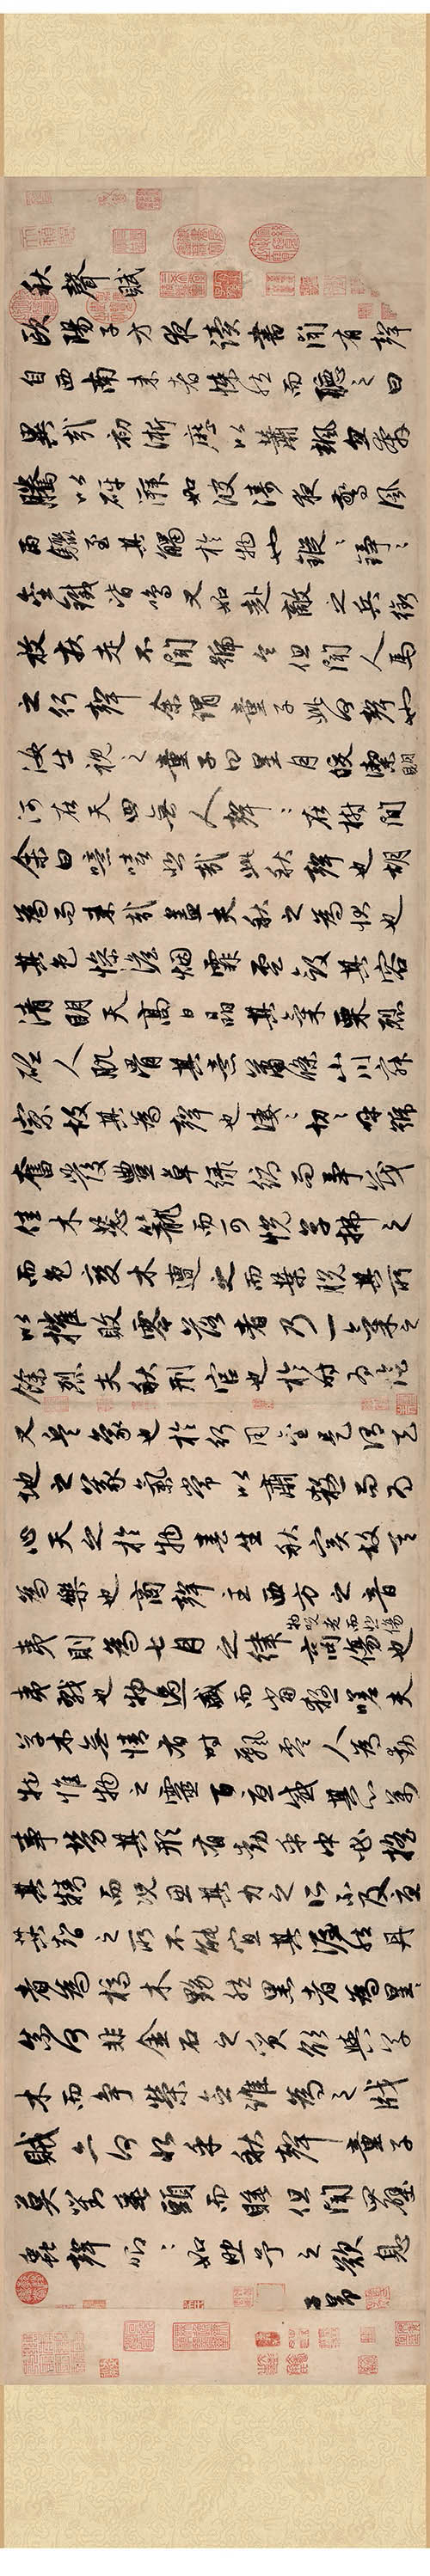 秋聲賦
歐陽子方夜讀書聞有聲
自西南來者悚然而聽之曰
異哉初淅瀝以蕭颯忽奔
騰以砰湃如波濤夜驚風
雨驟至其觸於物也鏦々錚々
金鐵皆鳴又如赴敵之兵銜
枚疾走不聞號令但聞人馬
之行聲余謂童子此何聲也
汝出視之童子曰星月皎潔明
河在天四無人聲々在樹間
余曰噫嘻悲哉此秋聲也胡
為而來哉蓋夫秋之為狀也
其色慘澹烟霏雲斂其容
清明天高日晶其氣栗烈
砭人肌骨其意蕭條山川寂
寥故其為聲也淒々切々呼號
奮發豐草綠縟而爭茂
佳木蔥籠而可悅草拂之
而色變木遭之而葉脫其所
以摧敗零落者乃一氣之
餘烈夫秋刑官也於時為陰
又兵象也於行用金是謂天
地之義氣常以肅殺而為
心天之於物春生秋實故其
為樂也商聲主西方之音
夷則為七月之律商傷也
物既老而悲傷
夷戮也物過盛而當殺嗟夫
草木無情有時飄零人為動
物惟物之靈百憂感其心萬
事勞其形有動乎中必搖
其精而況思其力之所不及憂
其智之所不能宜其渥然丹
者為槁木黟然黑者為星々
奈何非金石之質欲與草
木而爭榮念誰為之戕
賊亦何恨乎秋聲童子
莫對垂頭而睡但聞四壁
蟲聲唧々如助予之歎息
子昂